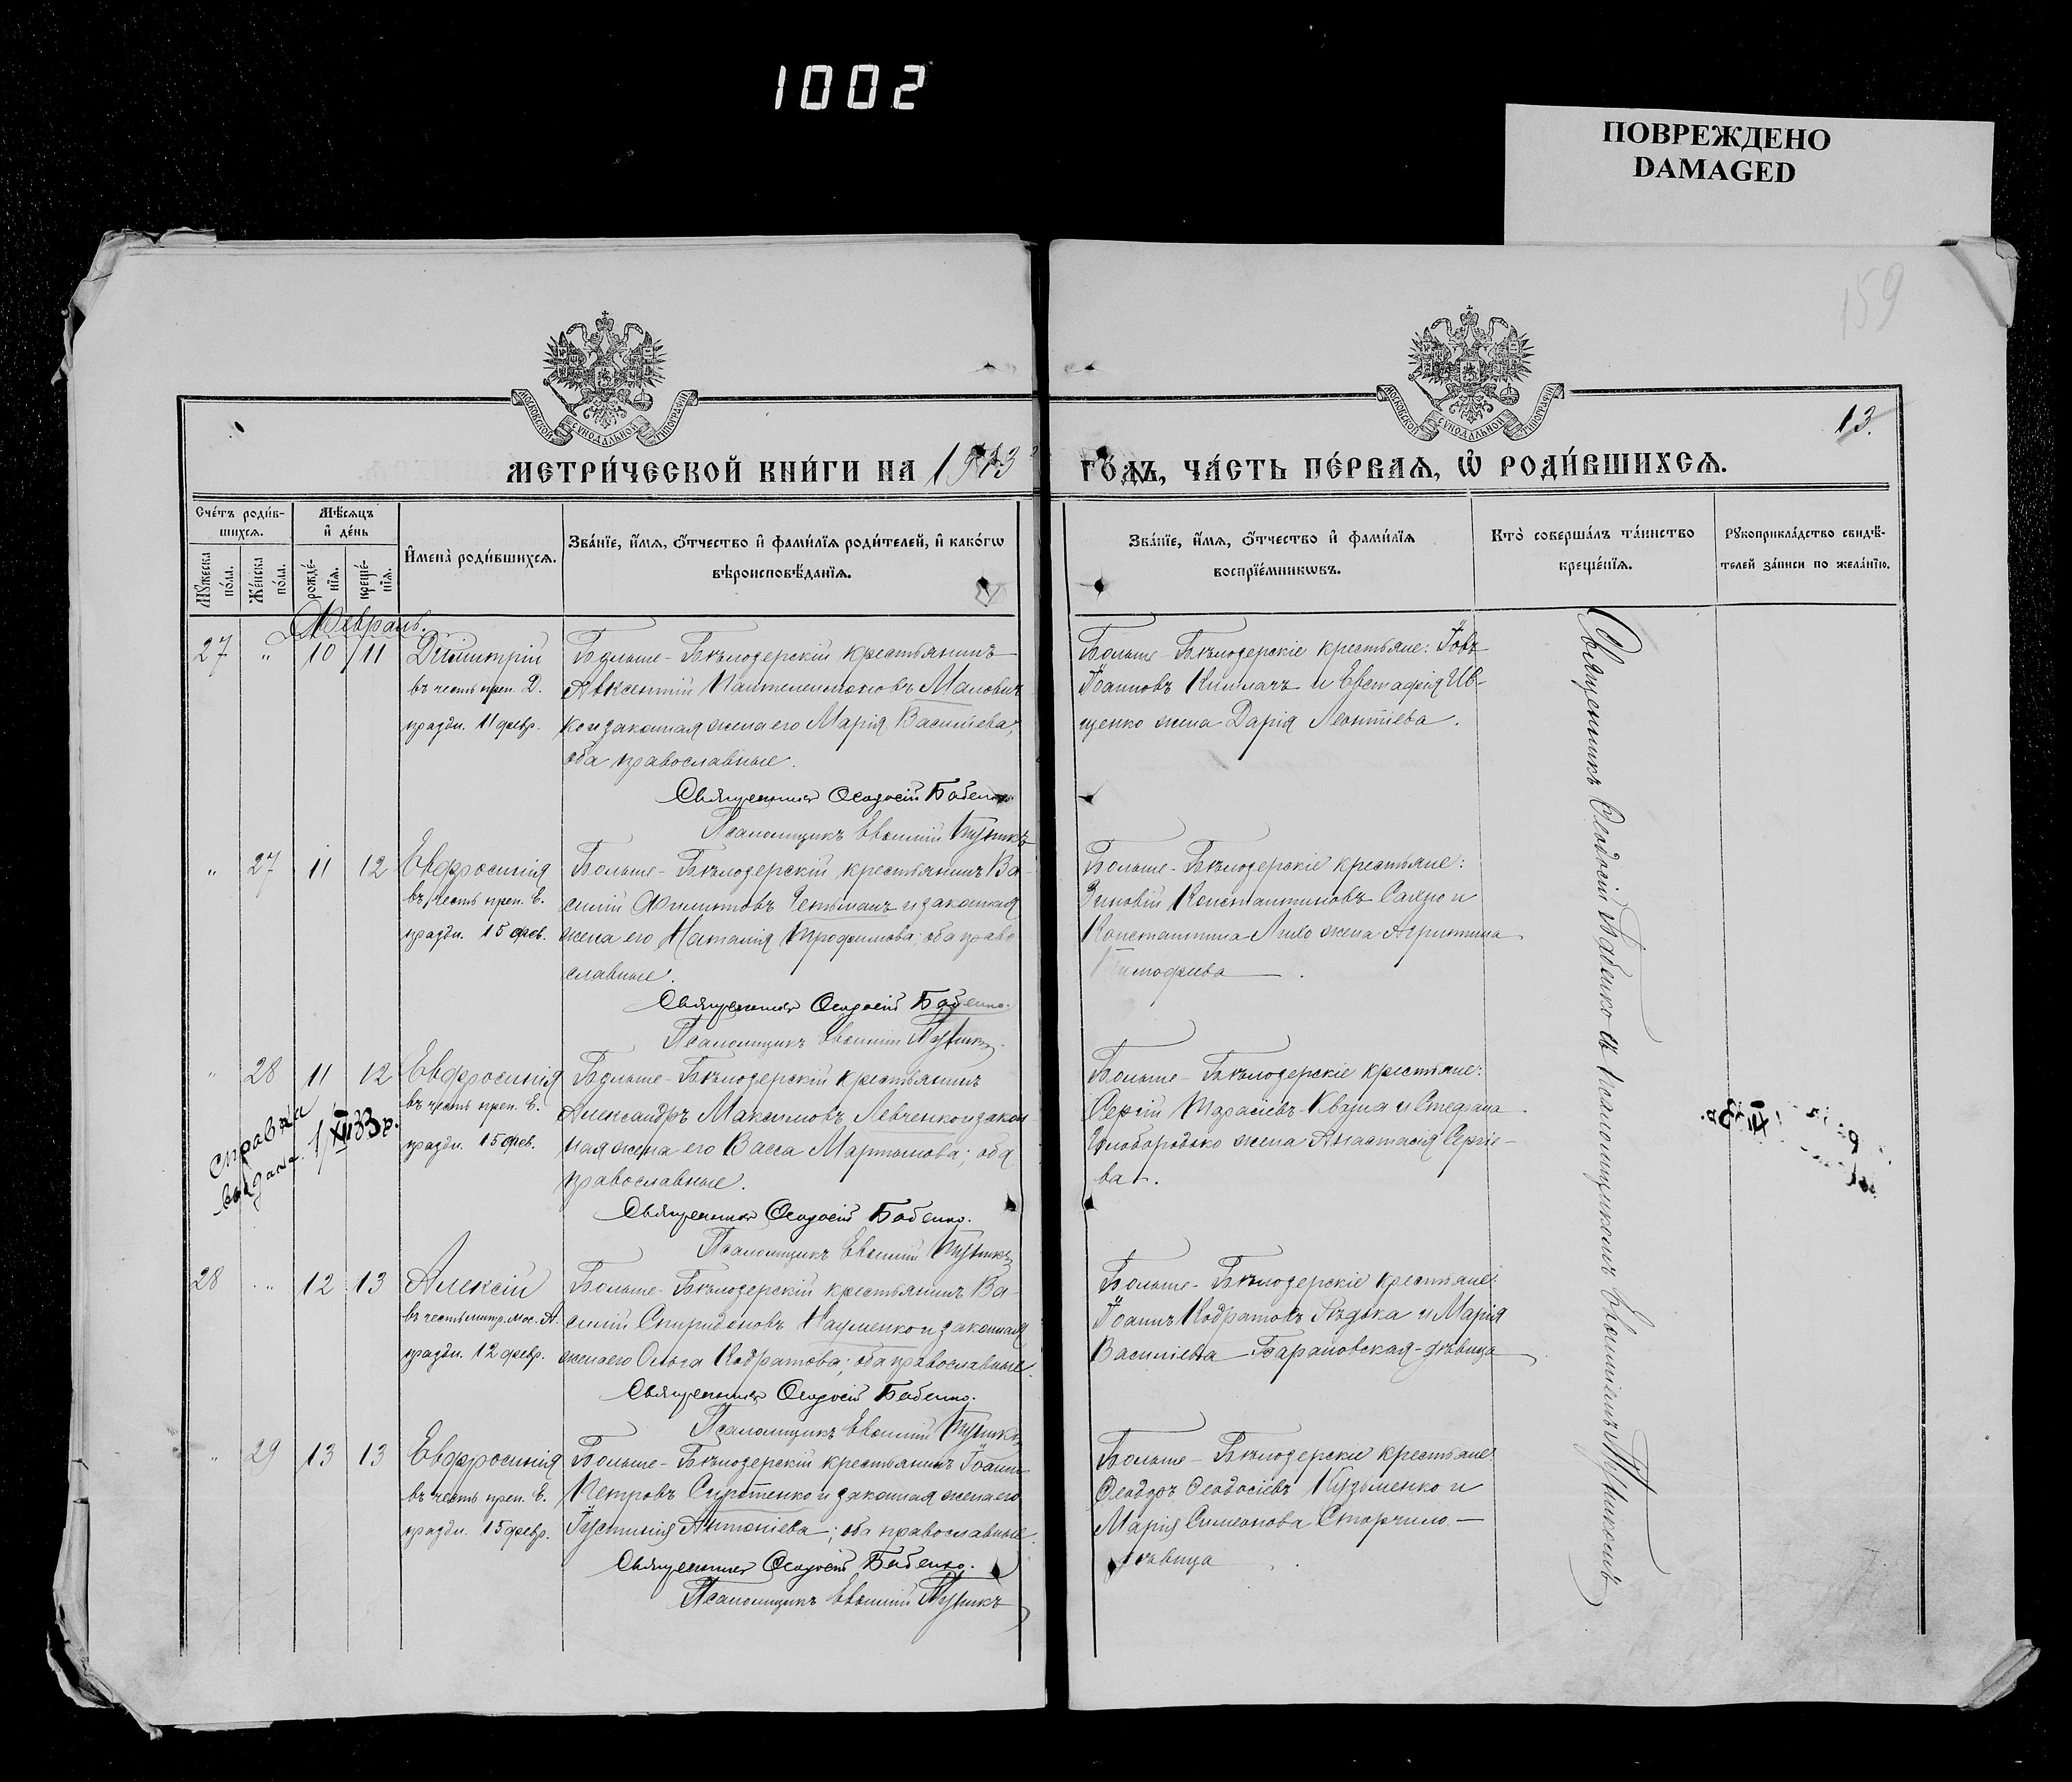 1002
ПОВРЕЖДЕНО
DAMAGED
159
МОСКОВСКОЙ СѴНОДАЛЬНОЙ ТИПОГРАФІИ
МОСКОВСКОЙ СѴНОДАЛЬНОЙ ТИПОГРАФІИ
13.
МЕТРИ́ЧЕСКОЙ КНИ́ГИ НА 1913
ГО́ДЪ, ЧА́СТЬ ПЕ́РВАѦ, Ѡ҆ РОДИ́ВШИХСѦ.
Сче́тъ роди́в-
шихсѧ.
Мꙋ́жеска по́ла.
Же́нска по́ла.
Мѣ́сѧцъ
и҆ де́нь
рожде́-нїѧ.
креще́-нїѧ.
И҆мена̀ роди́вшихсѧ.
Зва́нїе, и҆́мѧ, ѻ҆́тчество и҆ фами́лїѧ роди́телей, и҆ како́гѡ
вѣроисповѣ́данїѧ.
Зва́нїе, и҆́мѧ, ѻ҆́тчество и҆ фами́лїѧ
воспрїе́мникѡвъ.
Кто̀ соверша́лъ та́инство
креще́нїѧ.
Рꙋкоприкла́дство свидѣ́-
телей за́писи по жела́нїю.
Февраль.
27 " 10 11 Димитрій
въ честь преп. Д.
праздн. 11 февр.
Больше-Бѣлозерскій крестьянинъ
Авксентій Пантелеимоновъ Малович
ко и законная жена его Марія Васильева,
оба православные.
Священникъ Ѳеодосій Бабенко.
Псаломщикъ Евѳимій
Больше-Бѣлозерскіе крестьяне: Іовъ
Іоанновъ и Евстафія Ив-
щенко жена Дарія Леонтіева.
" 27 11 12 Евфросинія
въ честь преп. Е.
праздн. 15 фев.
Больше-Бѣлозерскій крестьянинъ Ва-
силій Филиповъ и законная
жена его Наталія Трофимова; оба право
славные.
Священникъ Ѳеодосій Бабенко.
Псаломщикъ Евѳимій
Больше-Бѣлозерскіе крестьяне:
Зиновій Константиновъ и
Константина жена Агриппина
Тимофеева.
" 28 11 12 Евфросинія
въ честь преп. Е.
праздн. 15 фев.
справка
выдана 1/XII 33 г.
Больше-Бѣлозерскій крестьянинъ
Александръ Максимовъ Левченко и закон
ная жена его Васса Мартынова; оба
православные.
Священникъ Ѳеодосій Бабенко.
Псаломщикъ Евѳимій
Больше-Бѣлозерскіе крестьяне:
Сергій Тарасіевъ Кваша и Стефана
жена Анастасія Сергіе-
ва.
28 " 12 13 Алексій
въ честь митр. мос. А.
праздн. 12 февр.
Больше-Бѣлозерскій крестьянинъ Ва-
силій Спиридоновъ Науменко и законная
жена его Ольга Кодратова; оба православные.
Священникъ Ѳеодосій Бабенко.
Псаломщикъ Евѳимій
Больше-Бѣлозерскіе крестьяне:
Іоаннъ Кодратовъ Рѣдька и Марія
Василіева Барановская-дѣвица
" 29 13 13 Евфросинія
въ честь преп. Е.
праздн. 15 февр.
Больше-Бѣлозерскій крестьянинъ Іоаннъ
Петровъ Сиротенко и законная жена его
Іустинія Антоніева; оба православные.
Священникъ Ѳеодосій Бабенко.
Псаломщикъ Евѳимій
Больше-Бѣлозерскіе крестьяне:
Ѳеодоръ Ѳеодосіевъ Кузьменко и
Марія Симеонова Сторчило-
дѣвица
Священникъ Ѳеодосій Бабенко съ псаломщикомъ Евѳиміемъ